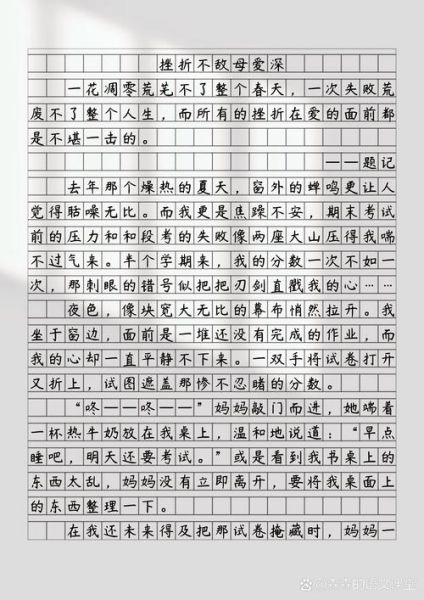 挫折不敌母爱深
一花凋零荒芜不了整个春天，一次失败荒
废不了整个人生，而所有的挫折在爱的面前都
是不堪一击的。
——题记
去年那个燥热的夏天，窗外的蝉鸣更让人
觉得聒噪无比。而我更是焦躁不安，期末考试
前的压力和和段考的失败像两座大山压得我喘
不过气来。半个学期来，我的分数一次不如一
次，那刺眼的错号似把把刃剑直戳我的心……
夜色，像块宽大无比的幕布悄然拉开。我
坐于窗边，面前是一堆还没有完成的作业，而
我的心却一直平静不下来。一双手将试卷打开
又折上，试图遮盖那惨不忍睹的分数。
“咚——咚——”妈妈敲门而进，她端着
一杯热牛奶放在我桌上，温和地说道：“早点
睡吧，明天还要考试。”或是看到我书桌上的
东西太乱，妈妈没有立即离开，要将我桌面上
的东西整理一下。
在我还未来得及把那试卷掩藏时，妈妈一